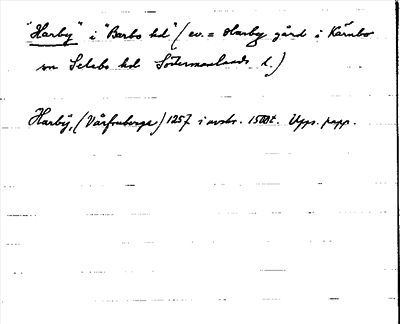 "Harby" i "Barbo hd" (ev. = Harby gård i Kärnbo
sn Selebo hd Södermanlands l.)
Harby, (Vårfruberga) 1257 i avskr. 1500t. Upps. papp.